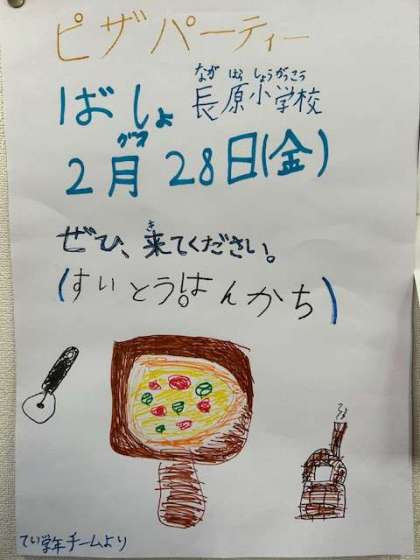 ピザパーティー
ばしょ 長原小学校
なが はら しょうがっこう
2月28日(金)
がつ
ぜひ、来てください。
き
(すいとう。はんかち)
てい学年チームより